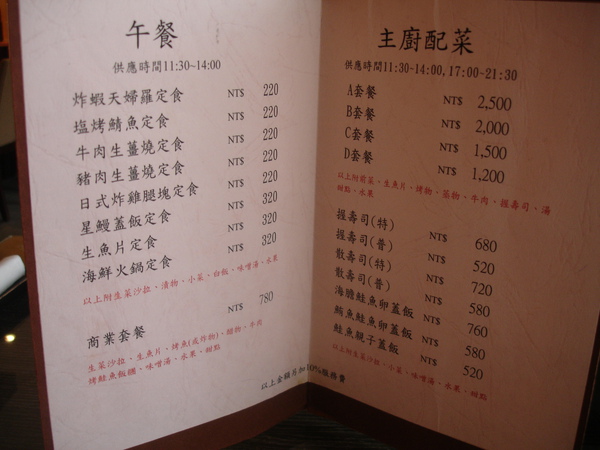 午餐
供應時間11:30~14:00
炸蝦天婦羅定食 NT$ 220
塩烤鯖魚定食 NT$ 220
牛肉生薑燒定食 NT$ 220
豬肉生薑燒定食 NT$ 220
日式炸雞腿塊定食 NT$ 220
星鰻蓋飯定食 NT$ 320
生魚片定食 NT$ 320
海鮮火鍋定食 NT$ 320
以上附生菜沙拉、漬物、小菜、白飯、味噌湯、水果
商業套餐 NT$ 780
生菜沙拉、生魚片、烤魚(或炸物)、醋物、牛肉
烤鮭魚飯糰、味噌湯、水果、甜點
主廚配菜
供應時間11:30~14:00,17:00~21:30
A套餐 NT$ 2,500
B套餐 NT$ 2,000
C套餐 NT$ 1,500
D套餐 NT$ 1,200
以上附前菜、生魚片、烤物、蒸物、牛肉、握壽司、湯
甜點、水果
握壽司(特) NT$ 680
握壽司(普) NT$ 520
散壽司(特) NT$ 720
散壽司(普) NT$ 580
海膽鮭魚卵蓋飯 NT$ 760
鮪魚鮭魚卵蓋飯 NT$ 580
鮭魚親子蓋飯 NT$ 520
以上附生菜沙拉、小菜、味噌湯、水果、甜點
以上金額另加10%服務費